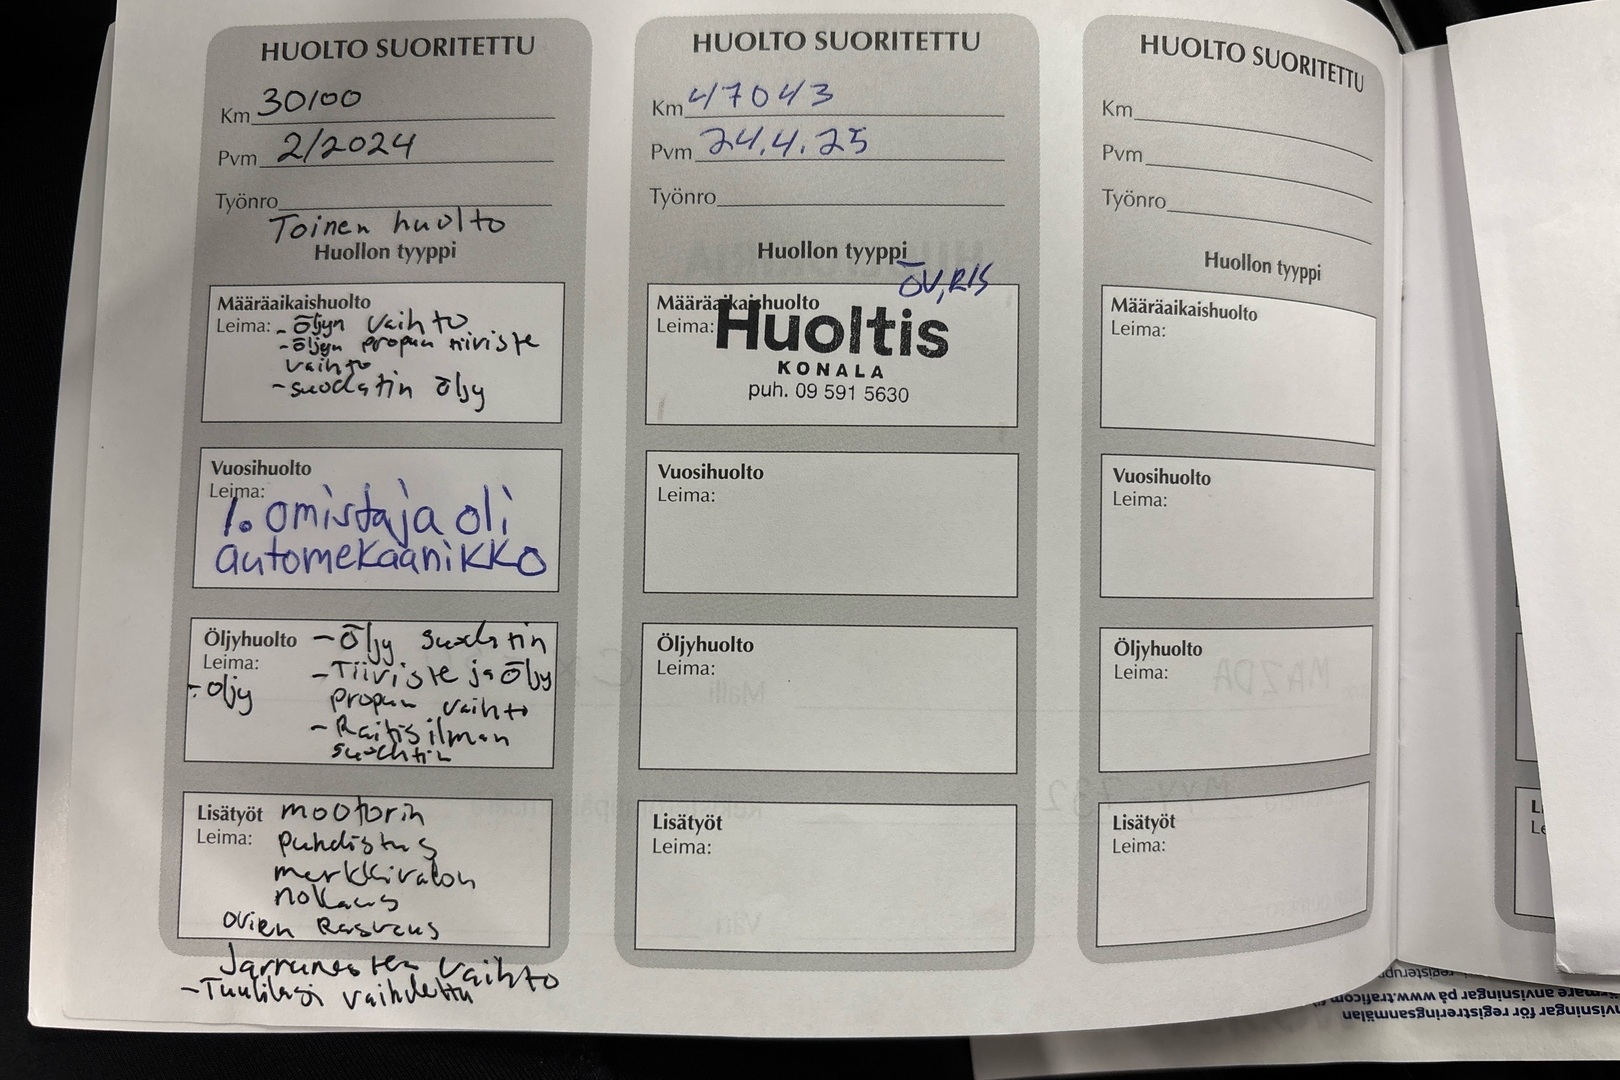 HUOLTO SUORITETTU
Km 30100
Pvm 2/2024
Työnro
Toinen huolto
Huollon tyyppi
Määräaikaishuolto
Leima: - öljyn vaihto
- öljyn propun tiiviste
vaihto
- suodatin öljy
Vuosihuolto
Leima:
1. omistaja oli
automekaanikko
Öljyhuolto - Öljy suodatin
Leima: - Tiiviste ja öljy
- öljy propun vaihto
- Raitisilman
suodatin
Lisätyöt moottorin
Leima: puhdistus
merkkivalon
nollaus
ovien Rasvaus
Jarrunesteen vaihto
- Tuulilasi vaihdettu
HUOLTO SUORITETTU
Km 47043
Pvm 24.4.25
Työnro
Huollon tyyppi
ÖV, RIS
Määräaikaishuolto
Leima: Huoltis
KONALA
puh. 09 591 5630
Vuosihuolto
Leima:
Öljyhuolto
Leima:
Lisätyöt
Leima:
HUOLTO SUORITETTU
Km
Pvm
Työnro
Huollon tyyppi
Määräaikaishuolto
Leima:
Vuosihuolto
Leima:
Öljyhuolto
Leima:
Lisätyöt
Leima:
anvisningar på www.traficom
visningar för registreringsanmälan